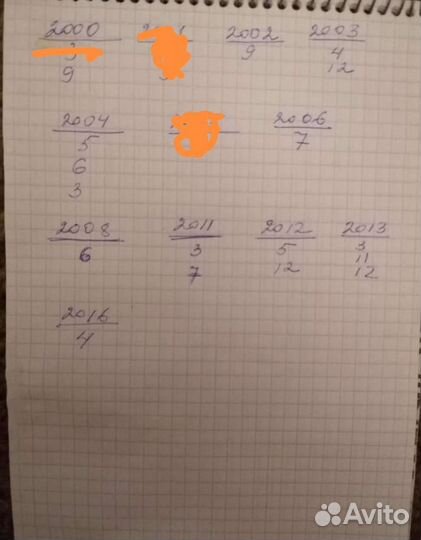 2000 2002 2003
9 9 4
12
2004 2006
5 7
6
3
2008 2011 2012 2013
6 3 5 3
7 12 11
12
2016
4
Avito